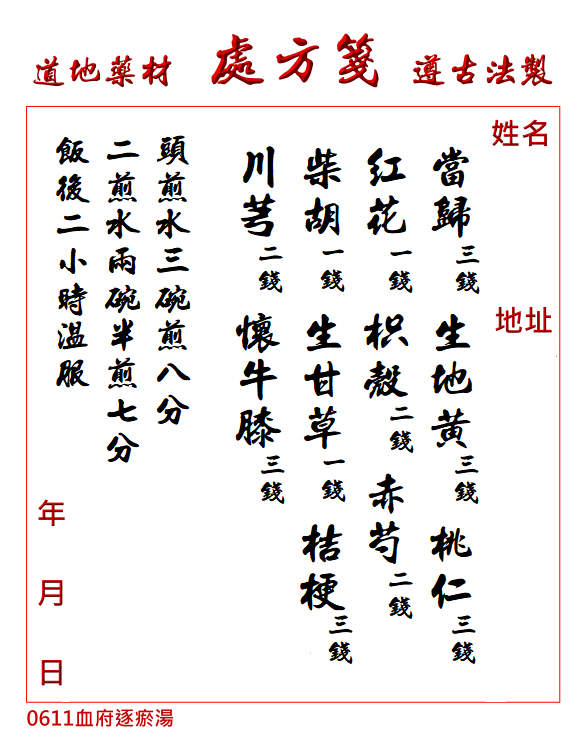 道地藥材 處方箋 遵古法製
姓名
地址
當歸三錢 生地黃三錢 桃仁三錢
红花一錢 枳殼二錢 赤芍二錢
柴胡一錢 生甘草一錢 桔梗三錢
川芎二錢 懷牛膝三錢
頭煎水三碗煎八分
二煎水兩碗半煎七分
飯後二小時溫服
年 月 日
0611血府逐瘀湯